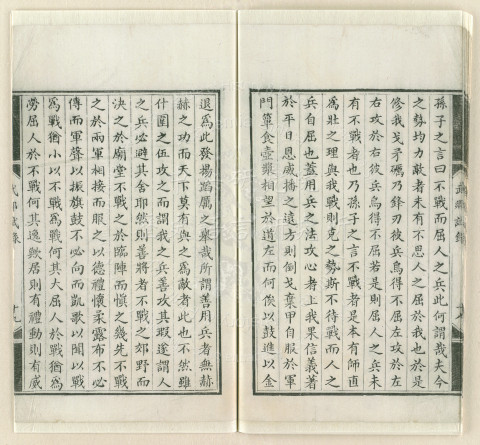 孫子之言曰不戰而屈人之兵此何謂哉夫今
之勢均力敵者未有不思人之屈於我也於是
修我戈矛礪乃鋒刃彼兵烏得不屈左攻於左
右攻於右彼兵烏得不屈若是則屈人之兵未
有不戰者也乃孫子之言不戰者是本有師直
為壯之理與我戰則克之勢斯不待戰而人之
兵自屈也蓋用兵之法攻心者上我果信義著
於平日恩威播之遠方則倒戈棄甲自服於軍
門簞食壺漿相望於道左而何俟以鼓進以金
退為此發揚蹈厲之舉哉所謂善用兵者無赫
赫之功而天下莫有與之為敵者此也不然雖
什圍之伍攻之而謂我之兵善攻其瑕遂謂人
之兵必避其舍耶然則善將者不戰之郊野而
決之於廟堂不戰之於臨陣而慎之幾先不戰
之於兩軍相接而服之以德禮懷柔露布不必
傳而軍聲以振旗鼓不必向而凱歌以聞以戰
為戰猶小以不戰為戰何其大屈人於戰猶為
勞屈人於不戰何其逸歟居則有禮動則有威